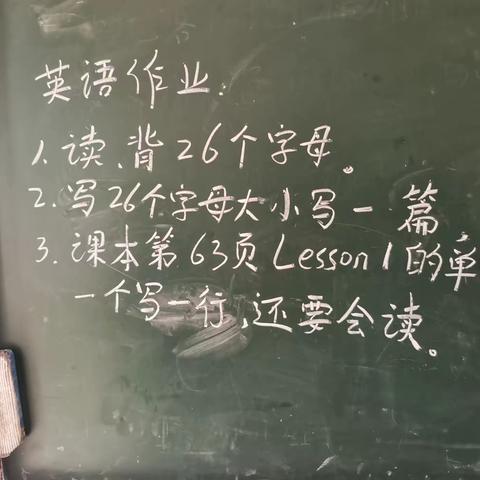 英语作业:
1. 读、背26个字母。
2. 写26个字母大小写一篇
3. 课本第63页Lesson 1的单
一个写一行,还要会读。